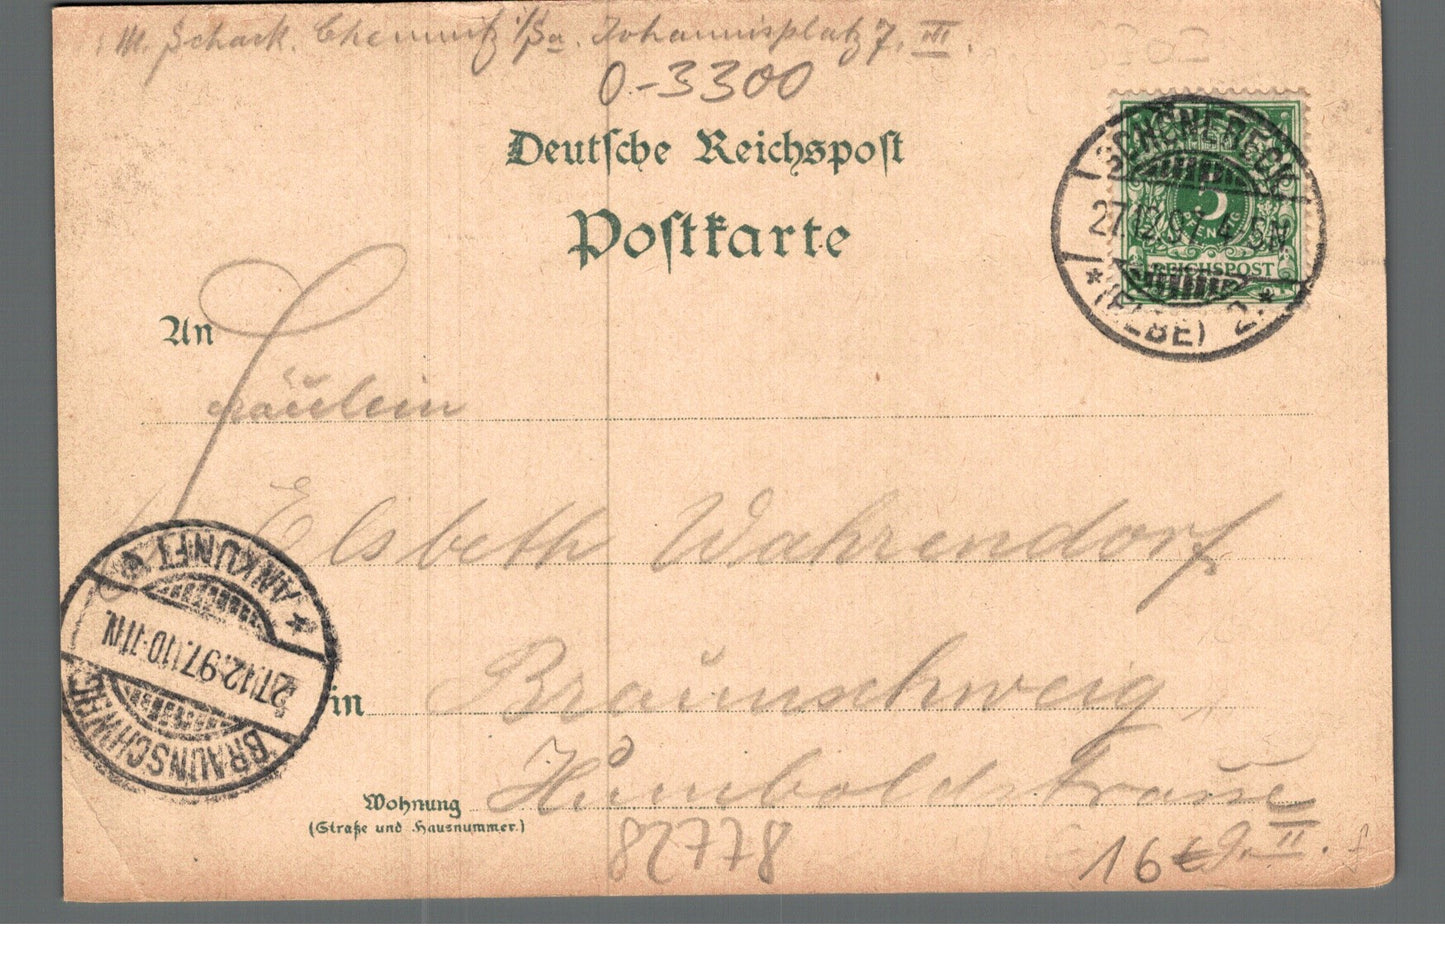 M. Schack. Chemnitz i/Sa. Johannisplatz 7, III.
0-3300
Deutsche Reichspost
Postkarte
SCHÖNEBECK
27.12.97. 4-5N
* (ELBE) 2. *
5
PFENNIG
REICHSPOST
An
Fräulein
Elsbeth Wahrendorf
* ANKUNFT *
27.12.97. 10-11N.
BRAUNSCHWEIG
in Braunschweig,
Wohnung Humboldstrasse
(Straße und Hausnummer.)
87728
16€
9. II.